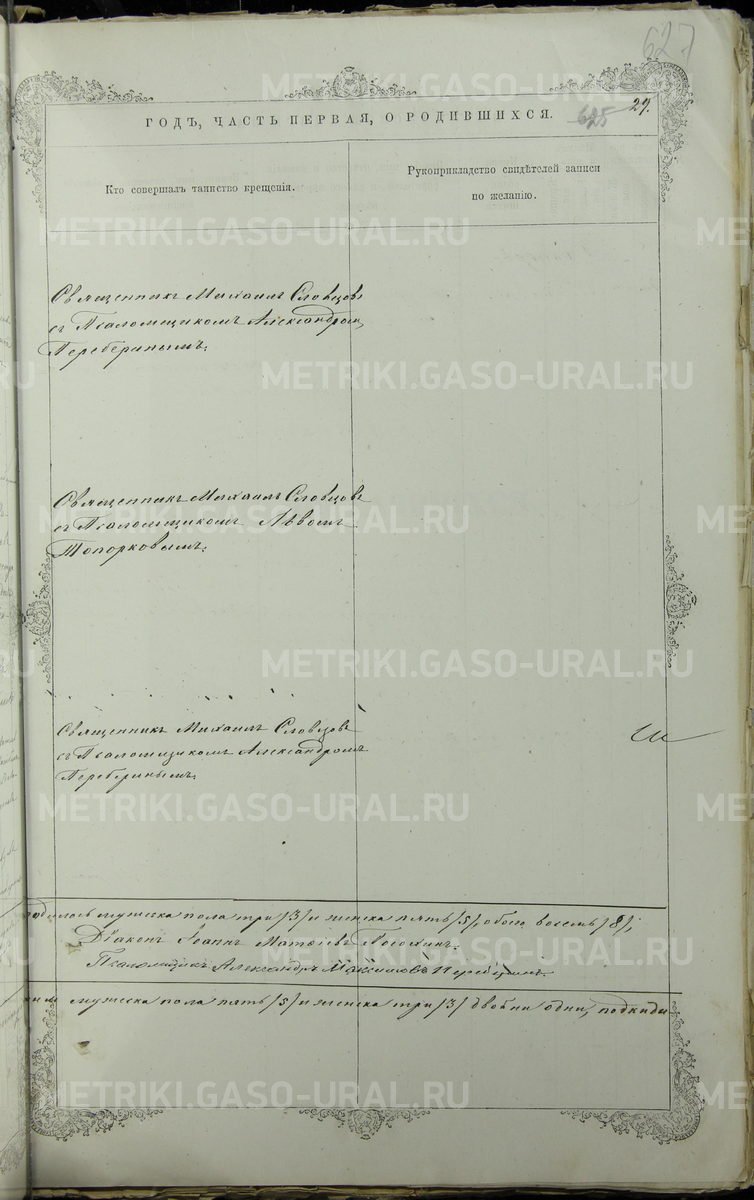 627
625 29.
ГОДЪ, ЧАСТЬ ПЕРВАЯ, О РОДИВШИХСЯ.
Кто совершалъ таинство крещенія.
Рукоприкладство свидѣтелей записи
по желанію.
Священникъ Михаилъ Словцовъ
съ Псаломщикомъ Александром
Переберинымъ.
Священникъ Михаилъ Словцовъ
съ Псаломщикомъ Львомъ
Топорковымъ.
Священникъ Михаилъ Словцовъ
съ Псаломщикомъ Александромъ
Переберинымъ.
мужеска пола три /3/ и женска пять /5/, обоего восемь /8/;
Діаконъ Іоаннъ Матѳіевъ
Псаломщикъ Александръ Максимовъ Переберинъ.
мужеска пола пять /5/ и женска три /3/ двойни одни, подкиды
METRIKI.GASO-URAL.RU